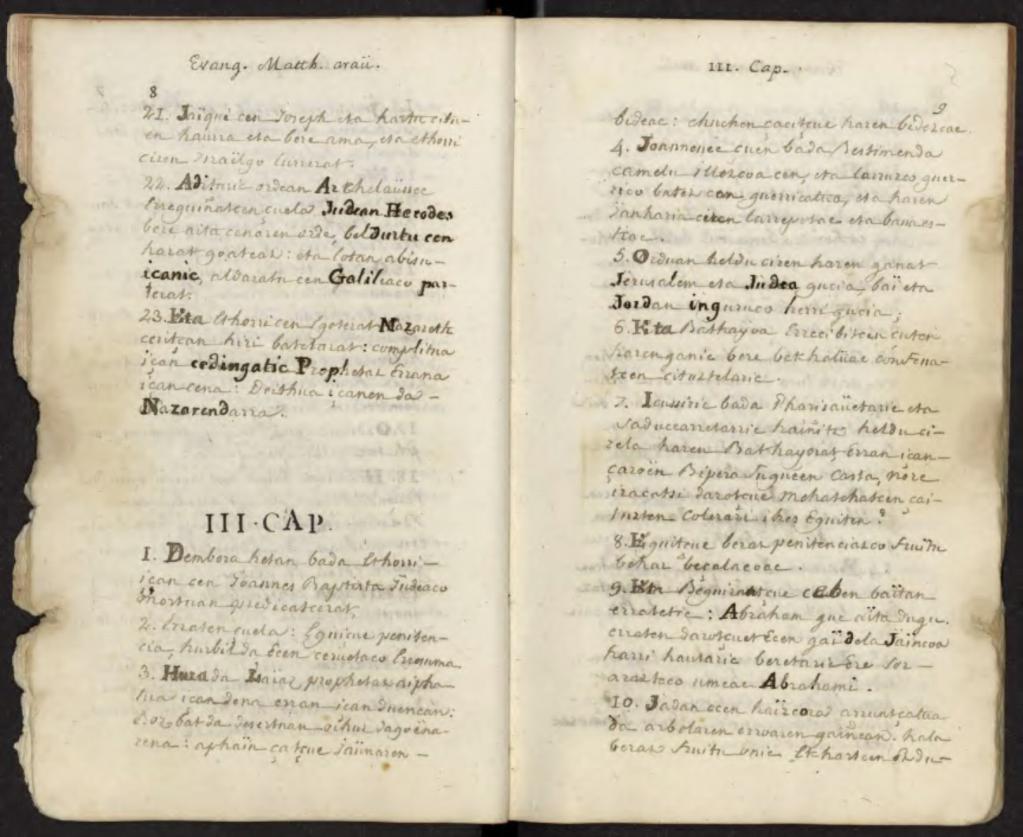 Evang. Matth. araü.
8
21. Jaiqui cen Joseph eta hartu citu-
en haurra eta bere ama, eta ethorri
ciren Israëlgo lurrerat.
22. Adituric ordean Archelaüsec
erreguiñatcen cuela Judean Herodes
bere aita cenaren orde, beldurtu cen
harat goatea: eta lotan abisu-
icanic, aldaratu cen Galileaco par-
terat.
23. Eta ethorri cen egoterat Nazareth
ceritcan hiri batetarat: complitua
içan cedingatic Prophetaz Errana
içan cena: Deithua içanen da -
Nazarendarra.
III. CAP.
1. Dembora hetan bada ethorri -
ican cen Joannes Baptista Judeaco
Mortuan predicatcerat,
2. Erraten cuela: Eguiçue peniten-
cia, hurbil da Ecen ceruetaco Erresuma.
3. Hura da Isaiaz prophetaz aipha-
tua ican dena erran ican duencan:
Boz bat da desertuan oihuz dagoena-
rena: aphain çatçue Jaunaren -
III. Cap.
9
bideac: chuchen çaitçue haren bidezcac.
4. Joannesec cuen bada Bestimenda
camelu illezcoa cen, eta larruzco guer-
rico batez cen guerricatua, eta haren
Janharia ciren larrepotac eta basa es-
tiac.
5. Orduan heldu ciren haren ganat
Jerusalem eta Judea gucia, baï eta
Jordan inguruco herri gucia;
6. Eta Bathayoa Errecibitcen cuten
haren ganic bere bekhatuac confessa-
tcen cituztelaric.
7. Icussiric bada Pharisaüetaric eta
Saducearretarric hainitz heldu ci-
rela haren Bathayorat, Erran ican -
çaroën Bipera suguëen Casta, nore
iracatsi darotçue mehatchatcen çai-
tuzten Colerari ihes Eguiten?
8. Eguitçue beraz penitenciazco fruitu
behar becalacoac.
9. Eta Beguirautçue ceben baïtan
erratetic: Abraham gue aïta dugu.
erraten darotçuet Ecen gaï dela Jaincoa
harri hautaric beretaric Ere sor -
arazteco umeac Abrahami.
10. Jadan ecen haïzcora arrunt çaltua
da arbolaren erroaren gaiñean. hala
beraz fruitu onic Ekhartcen Ez du-